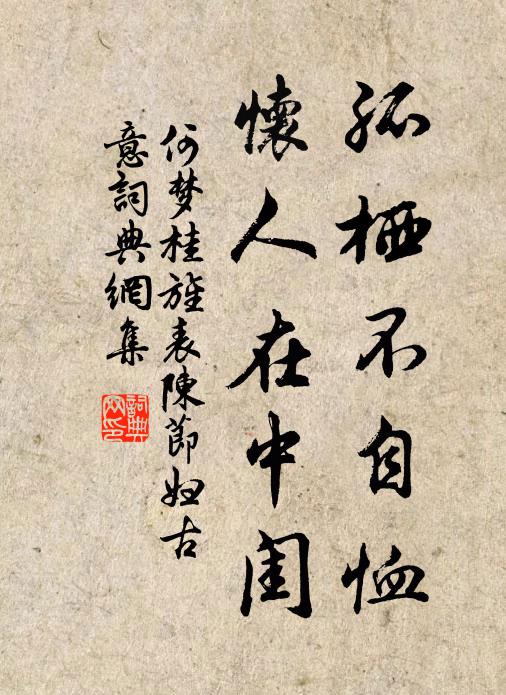 孤栖不自恤
懷人在中闺
何梦桂旌表陳節妇古
意詞典網集
詞典網印